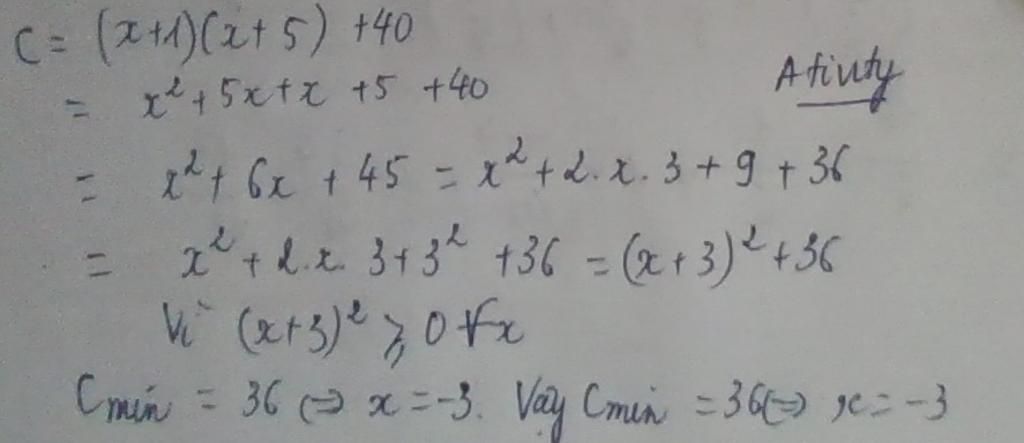 C = (x+1)(x+5) +40
Afiuty
= x² + 5x + x + 5 + 40
= x² + 6x + 45 = x² + 2.x.3 + 9 + 36
= x² + 2.x.3 + 3² + 36 = (x+3)² + 36
Vì (x+3)² ⩾ 0 ∀x
Cmin = 36 ⇔ x = -3. Vậy Cmin = 36 ⇔ x = -3